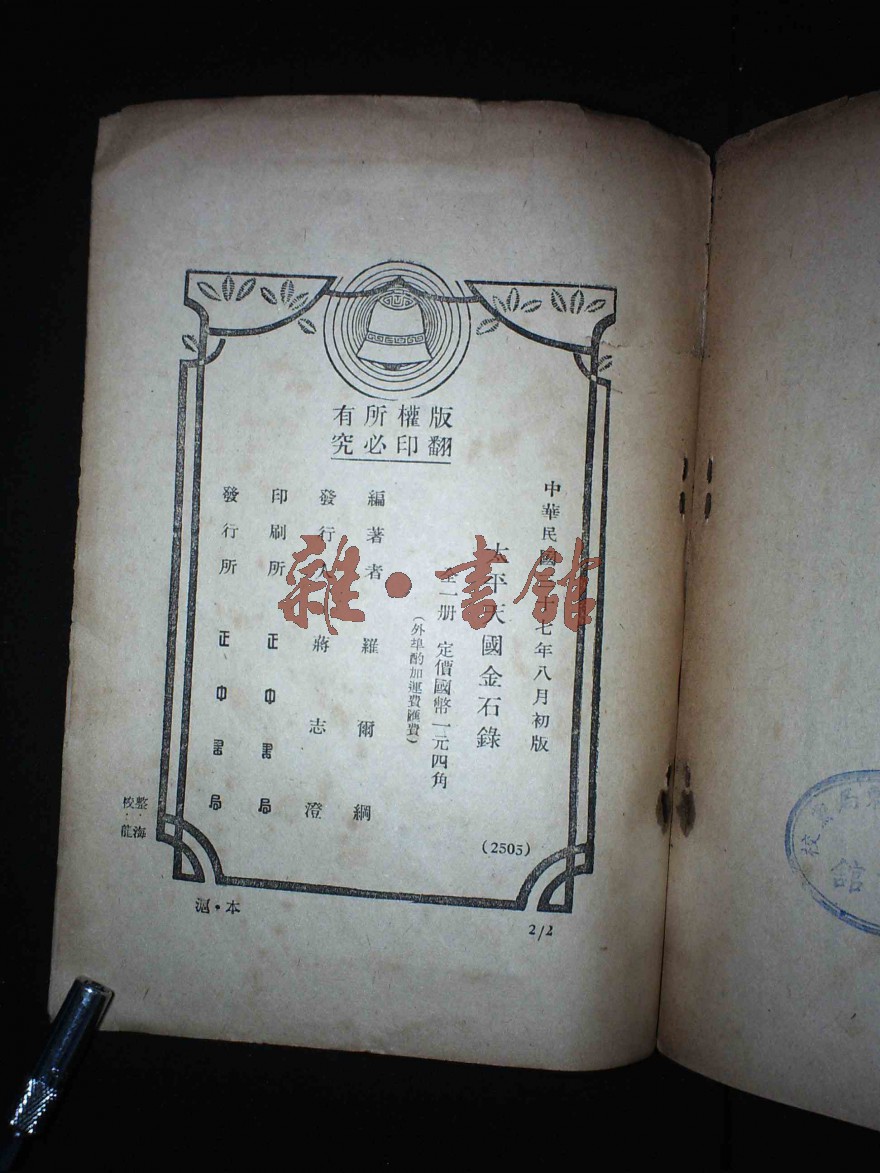 版權所有
翻印必究
中華民國三十七年八月初版
太平天國金石錄
全一册 定價國幣一元四角
(外埠酌加運費匯費)
編著者 羅爾綱
發行人 蔣志澄
印刷所 正中書局
發行所 正中書局
(2505)
整海
校
龍
滬·本
2/2
雜·書館
局
校
館